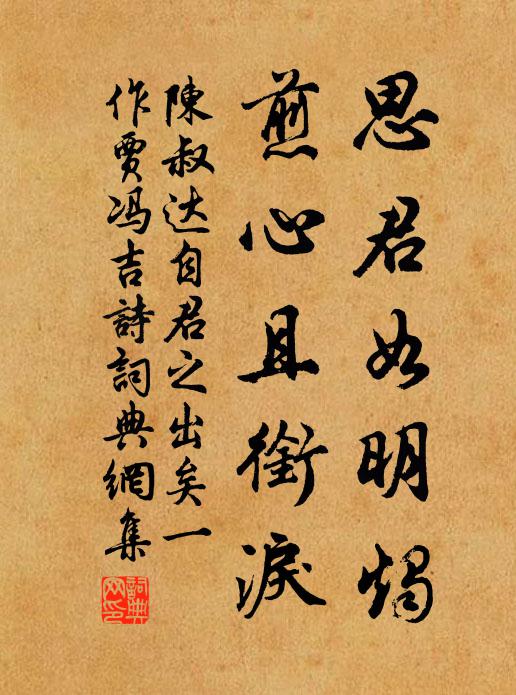 思君如明燭
煎心且銜淚
陳叔达自君之出矣一
作賈冯吉詩詞典網集
詞典网印